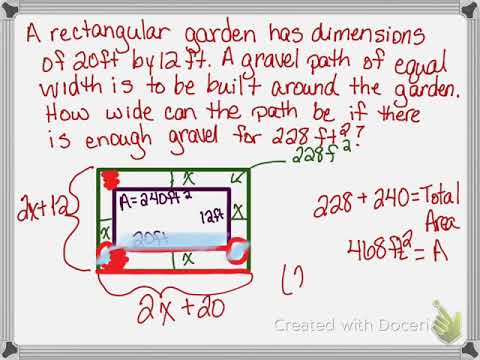 A rectangular garden has dimensions
of 20ft by 12ft. A gravel path of equal
width is to be built around the garden.
How wide can the path be if there
is enough gravel for 228ft²?
228ft².
x
A=240ft²
x
x
12ft
20ft
x
2x+12
2x+20
228 + 240 = Total
Area
468ft² = A
(2
Created with Doceri